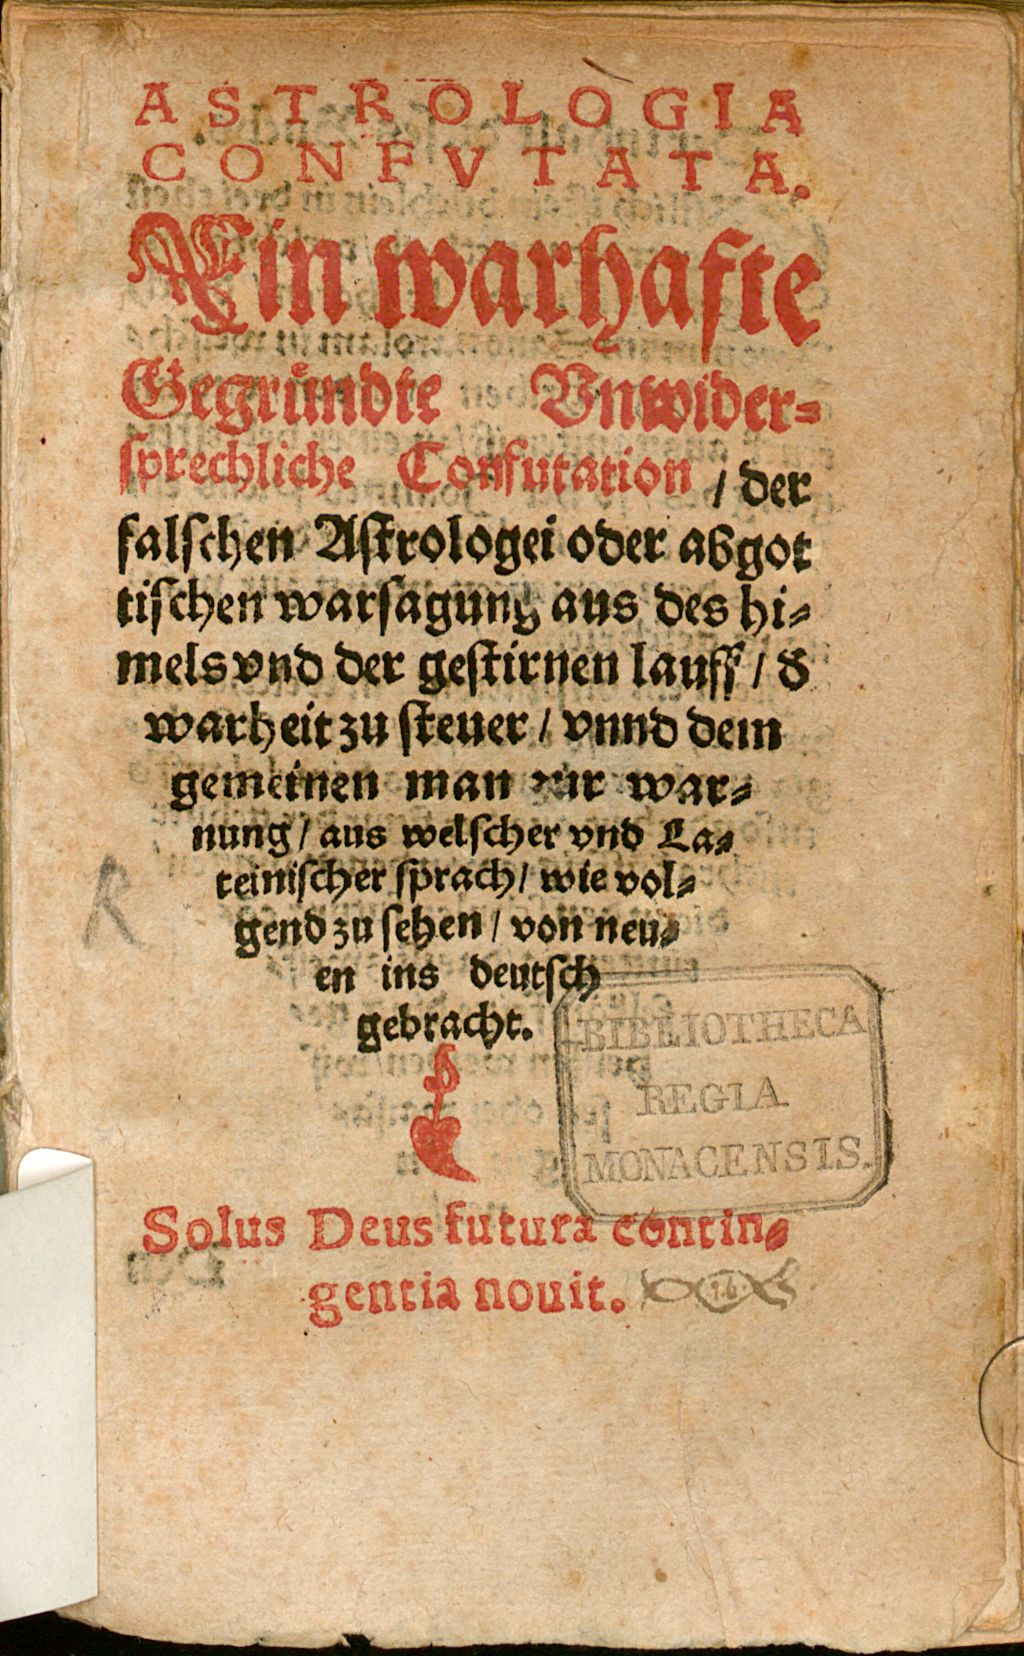 ASTROLOGIA
CONFVTATA.
Ein warhafte
Gegruͤndte Vnwider-
sprechliche Confutation / der
falschen Astrologei oder abgot
tischen warsagung aus des hi-
mels vnd der gestirnen lauff / d
warheit zu steuer / vnnd dem
gemeinen man zur war-
nung / aus welscher vnd La-
teinischer sprach / wie vol-
gend zu sehen / von neu-
en ins deutsch
gebracht.
R
BIBLIOTHECA
REGIA
MONACENSIS.
Solus Deus futura contin-
gentia nouit.